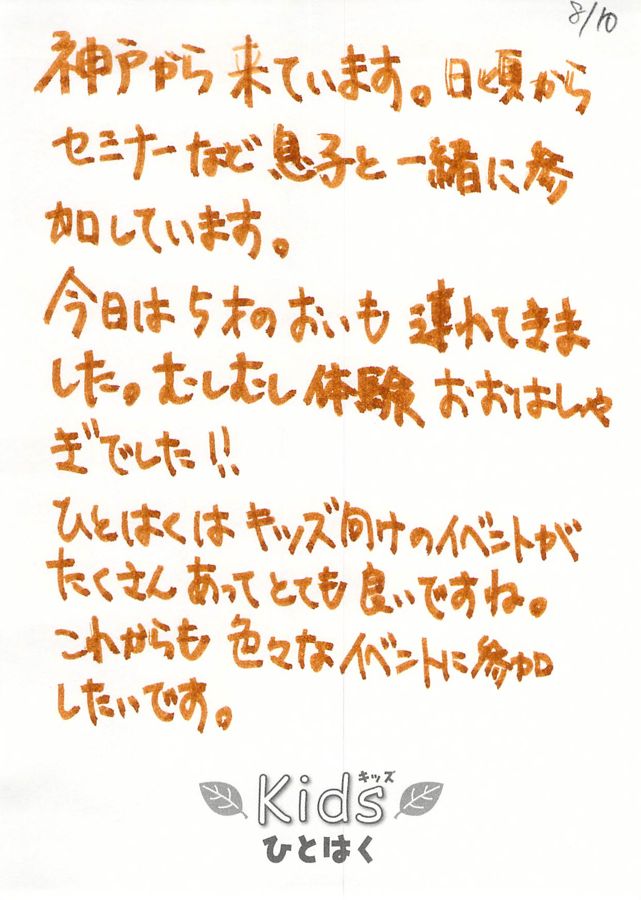 8/10
神戸から来ています。日頃から
セミナーなど息子と一緒に参
加しています。
今日は5才のおいも連れてきま
した。むしむし体験おおはしゃ
ぎでした!!
ひとはくはキッズ向けのイベントが
たくさんあってとても良いですね。
これからも色々なイベントに参加
したいです。
キッズ
Kids
ひとはく